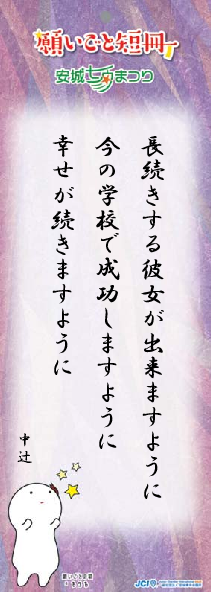 願いごと短冊
安城七夕まつり
長続きする彼女が出来ますように
今の学校で成功しますように
幸せが続きますように
中辻
願いごと短冊
JCI